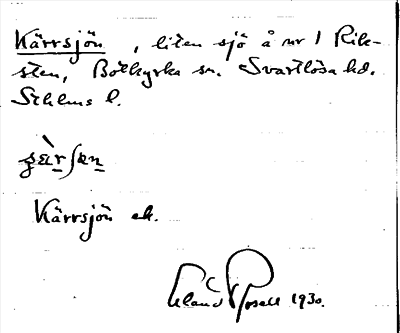 Kärrsjön, liten sjö å nr 1 Rik-
sten, Botkyrka sn. Svartlösa hd.
Sthlms l.
Kärrsjön ek.
Erland Rosell 1930.